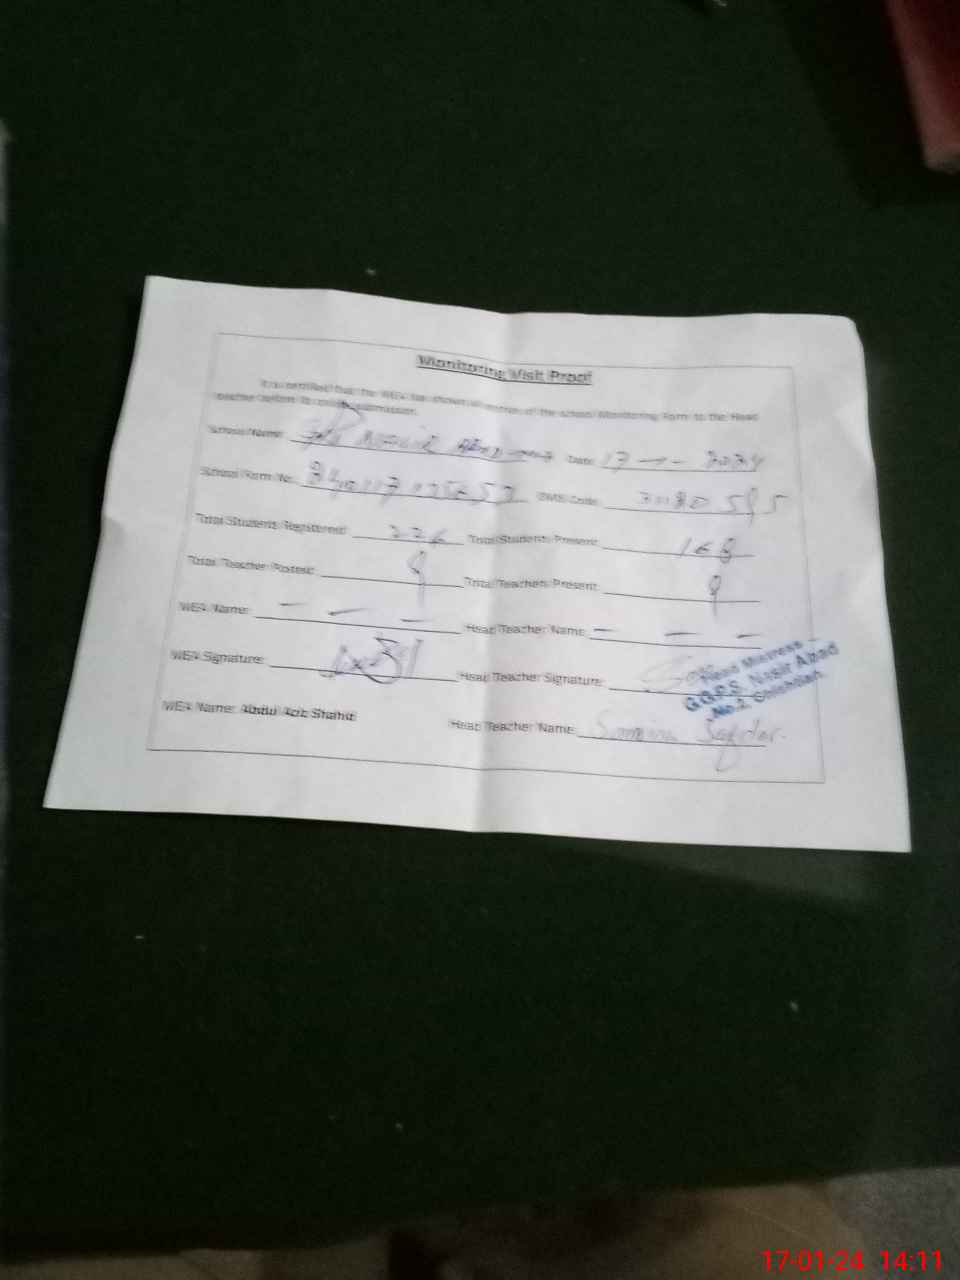 Monitoring Visit Proof
It is certified that the MEA has shown of the school Monitoring Form to the Head
teacher before its submission.
School Name: Nasir Date: 17 - 1 - 2024
School Form No: EMIS Code:
Total Students Registered: 226 Total Students Present: 168
Total Teacher Posted: 9 Total Teachers Present: 9
MEA Name: — — — Head Teacher Name: — — —
MEA Signature: Head Teacher Signature:
Head Mistress
G.G.P.S. Nasir Abad
No.2
MEA Name: Abdul Aziz Shahid Head Teacher Name: Samina Safdar.
17-01-24 14:11